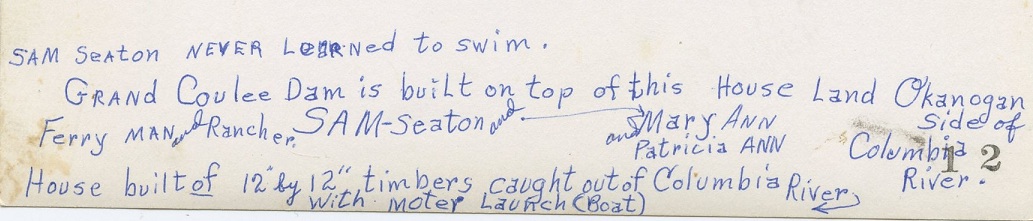 SAM Seaton NEVER LeaRNed to swim.
GRANd Coulee Dam is built on top of this House Land Okanogan
Side of
Columbia
River.
Ferry MAN and Rancher. SAM-Seaton and Mary ANN
and Patricia ANN
12
House built of 12" by 12" timbers caught out of Columbia River.
With moter Launch (Boat)